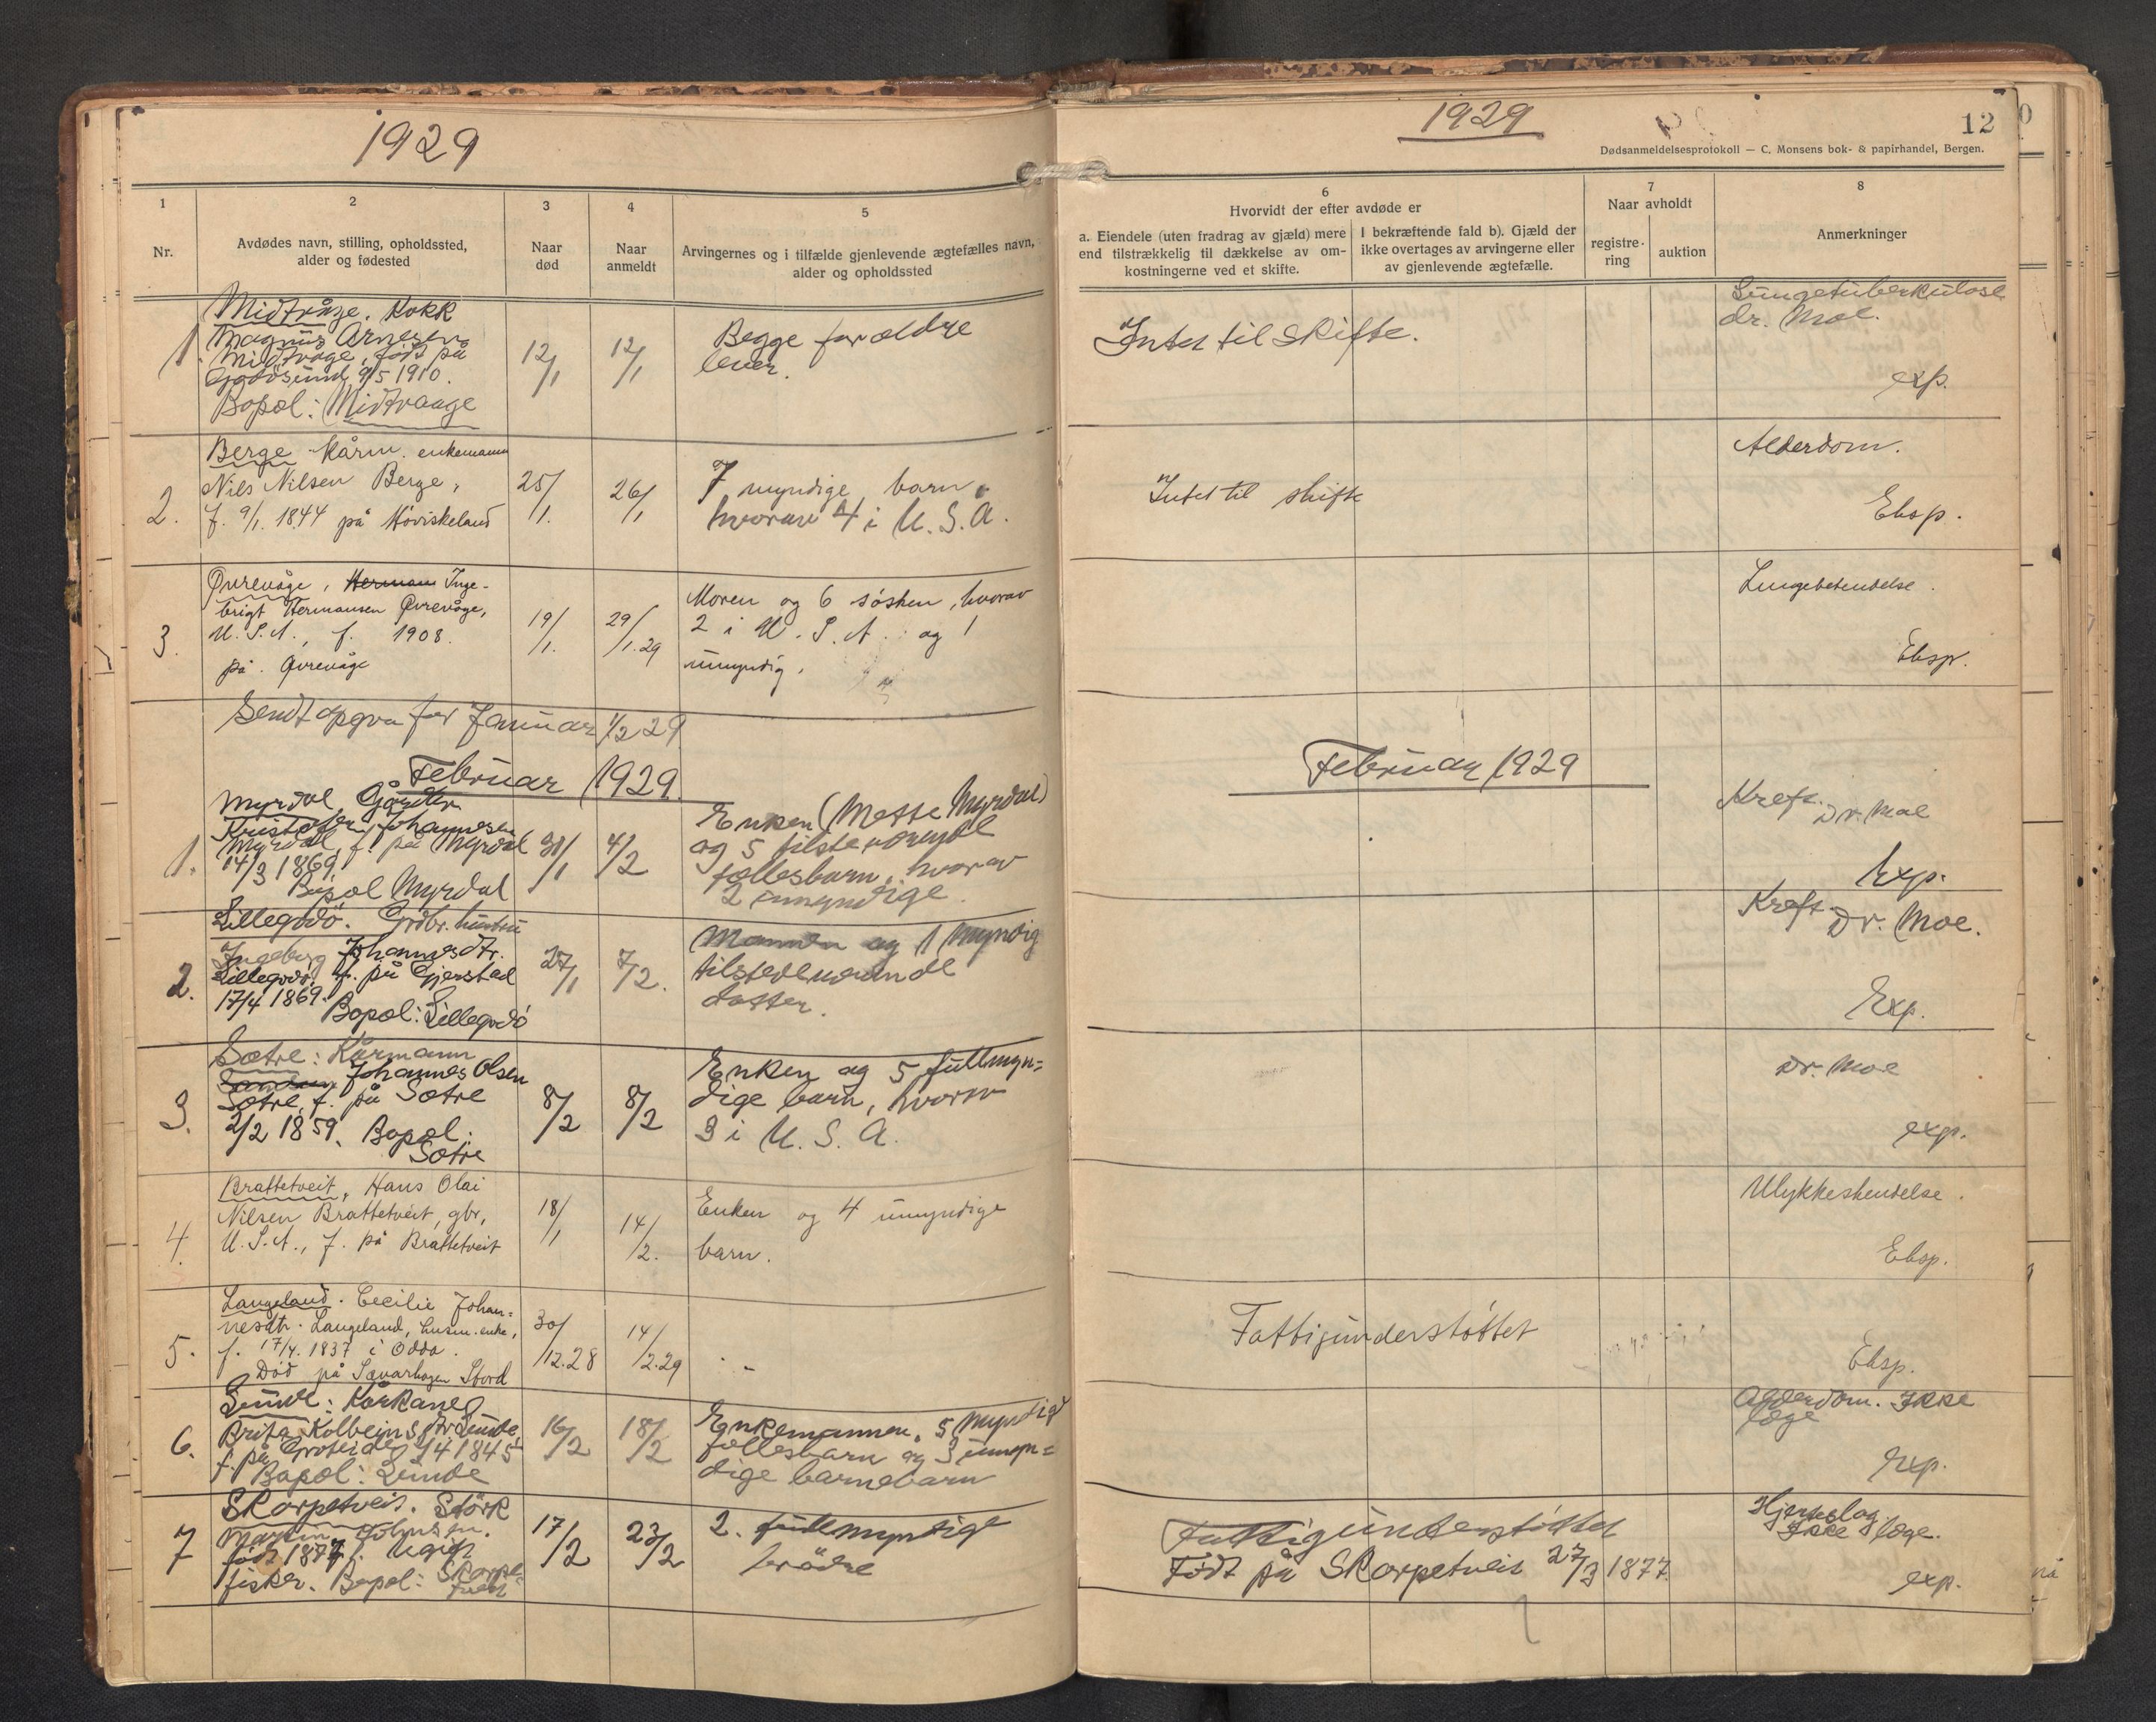 1929
1
2
3
4
5
Nr.
Avdødes navn, stilling, opholdssted,
alder og fødested
Naar
død
Naar
anmeldt
Arvingernes og i tilfælde gjenlevende ægtefælles navn,
alder og opholdssted
Midtvåge. Kokk
1. Magnus Arnesen
Midtvåge, født på
Godösund 9/5 1910.
Bopæl: Midtvaage
12/1
12/1
Begge forældre
lever.
Berge Kårm. enkemann
2. Nils Nilsen Berge,
f. 9/1. 1844 på Höviskeland
25/1.
26/1
7 myndige barn,
hvorav 4 i U.S.A.
Øvrevåge, Herman Inge-
brigt Hermansen Øvrevåge,
3. U.S.A., f. 1908.
på Øvrevåge
19/1.
29/1.29
Moren og 6 sösken, hvorav
2 i U.S.A. og 1
umyndig.
Sendt opgva for Januar 1/2 29
Februar 1929.
Myrdal Gårdbr.
Kristofer Johannesen
1. Myrdal, f. på Myrdal
14/3 1869,
Bopæl Myrdal
31/1
4/2
Enken (Mette Myrdal)
og 5 tilsteværende
fællesbarn, hvorav
2 umyndige.
Lillegodö. Grdbr. hustru
Ingeborg Johannesdtr.
2. Lillegodö, f. på Gjerstad
17/4 1869.
Bopæl: Lillegodö
27/1
7/2.
Mannen og 1 myndig
tilstedeværende
datter.
Sætre: Kårmann
Johannes Olsen
3. Sætre, f. på Sætre
2/2 1859. Bopæl:
Sætre
8/2
8/2
Enken og 5 fullmyn=
dige barn, hvorav
3 i U.S.A.
Brattetveit, Hans Olai
Nilsen Brattetveit, gbr,
4. U.S.A., f. på Brattetveit
18/1
14/2.
Enken og 4 umyndige
barn.
Langeland. Cecilie Johan=
nesdtr. Langeland, husm. enke,
5. f. 17/4. 1837 i Odda.
Död på Sævarhagen Stord
30/12.28
14/2.29
. -
Lunde: Kårkane
Brita Kolbeinsdtr Lunde,
6. f. på Groteide 2/4 1845
Bopæl: Lunde
16/2
18/2
Enkemannen, 5 myndige
fællesbarn og 3 umyn=
dige barnebarn
Skorpetveit. Störk
7 Martin Johnsen.
født 1877. Ugift
fisker. Bopæl: Skorpe
tveit
17/2
23/2
2. fullmyndige
brödre
1929
12
Dødsanmeldelsesprotokoll — C. Monsens bok- & papirhandel, Bergen.
6
7
8
Hvorvidt der efter avdøde er
a. Eiendele (uten fradrag av gjæld) mere
end tilstrækkelig til dækkelse av om-
kostningerne ved et skifte.
I bekræftende fald b). Gjæld der
ikke overtages av arvingerne eller
av gjenlevende ægtefælle.
Naar avholdt
registre-
ring
auktion
Anmerkninger
Intet til skifte.
Lungetuberkulose
dr. Moe.
exp.
Intet til skifte
Alderdom.
Eksp.
Lungebetendelse.
Eksp.
Februar 1929
Kreft. Dr. Moe
Exp.
Kreft. Dr. Moe.
Exp.
Dr. Moe
exp.
Ulykkeshendelse.
Eksp.
Fattigunderstöttet
Eksp.
Alderdom. Ikke
læge
Exp.
Fattigunderstöttet
Født på Skorpetveit 27/3 1877.
Hjerteslag.
Ikke læge.
exp.